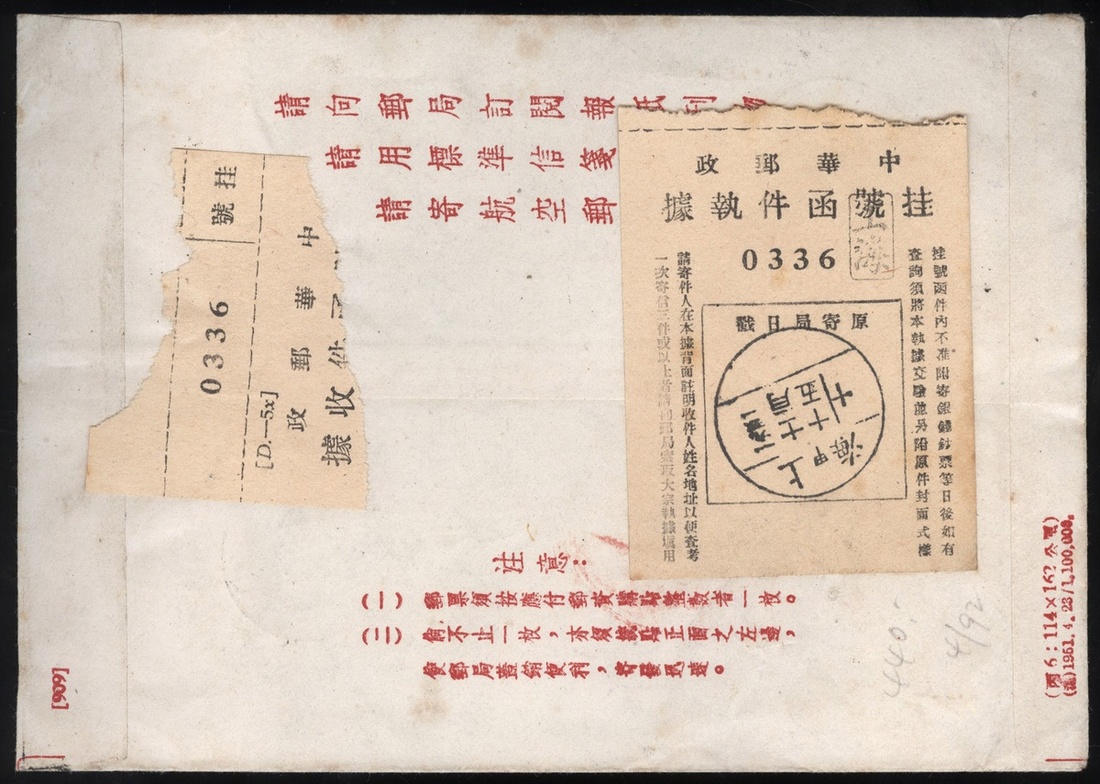 請向郵局訂閱報紙刊
請用標準信箋
請寄航空郵
中華郵政
挂號函件執據
0336
上海
挂號函件內不准附寄銀錢鈔票等日後如有
查詢須將本執據交驗並另附原件封面式樣
原寄局日戳
上海
甲
請寄件人在本據背面註明收件人姓名地址以便查考
一次寄信三件或以上者請向郵局索取大宗執據填用
挂號
0336
中華郵政
件收據
[D.—5x]
注意:
(一) 郵票須按應付郵資購貼整數者一枚。
(二) 倘不止一枚,亦須黏貼正面之左邊,
俾郵局蓋銷便利,寄發迅速。
440.-
4/92
(丙6:114×162公厘)
(滬)1951.4.23/1,100,000.
[909]